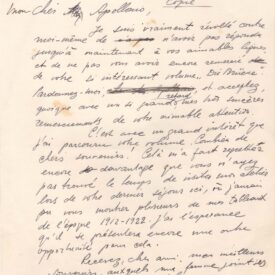 Copie
Mon cher Apollonio,
Je suis vraiment révolté contre
moi-même de n'avoir pas répondu
jusqu'à maintenant à vos aimables lignes
et de ne pas vous avoir encore remercié
de votre si intéressant volume.
Pardonnez-moi retard et acceptez,
quoique avec un si grand, mes très sincères
remerciements de votre aimable attention.
C'est avec un grand intérêt que
j'ai parcouru votre volume
chers souvenirs. Cela m'a fait regretter
encore davantage que vous n'ayez
pas trouvé le temps de visiter mon atelier
lors de votre dernier séjour ici, où j'aurais
pu vous montrer plusieurs de mes tableaux
de l'époque 1912-1922. J'ai l'espérance
qu'il se présentera encore une autre
opportunité pour cela.
Recevez, cher ami, mes meilleurs
souvenirs auxquels ma femme joint les